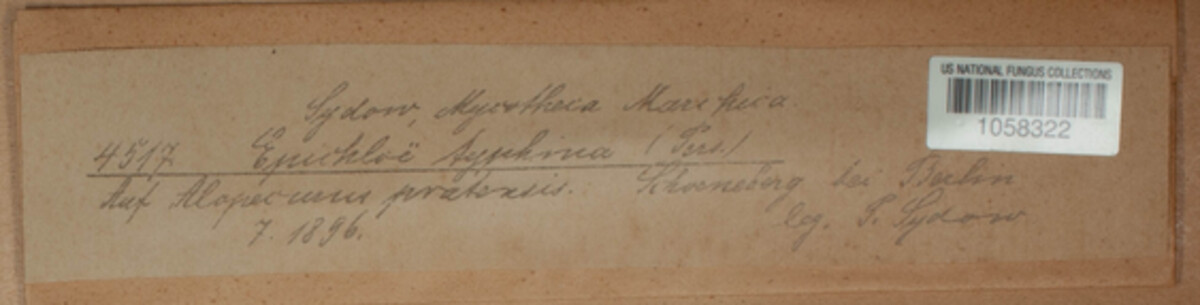 US NATIONAL FUNGUS COLLECTIONS
1058322
Sydow, Mycotheca Marchica.
4517 Epichloë typhina (Pers.)
Auf Alopecurus pratensis. Schoeneberg bei Berlin
7. 1896. leg. P. Sydow